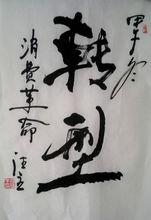 甲午冬
轉型
消費革命